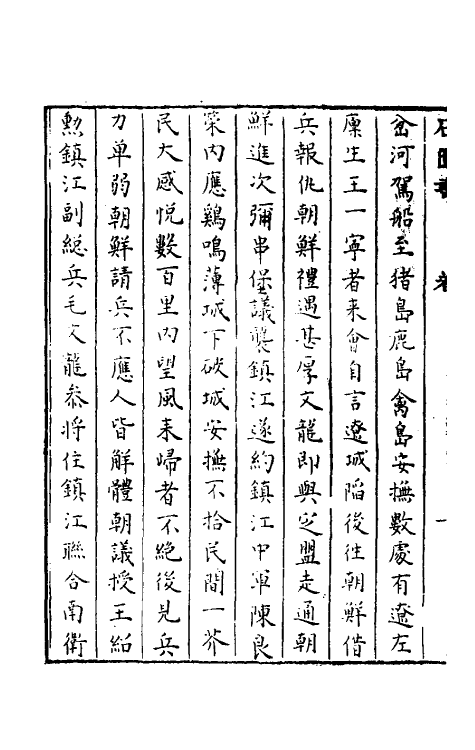 岔河駕船至猪島鹿島禽島安撫數處有遼左
廩生王一寧者来會自言遼城陷後徃朝鮮借
兵報仇朝鮮禮遇甚厚文龍即與之盟走通朝
鮮進次彌串堡議襲鎮江遂約鎮江中軍陳良
策内應鷄鳴薄城下破城安撫不拾民間一芥
民大感悦數百里内望風来歸者不絶後見兵
力单弱朝鮮請兵不應人皆解體朝議授王紹
勲鎮江副総兵毛文龍叅將住鎮江聯合南衛